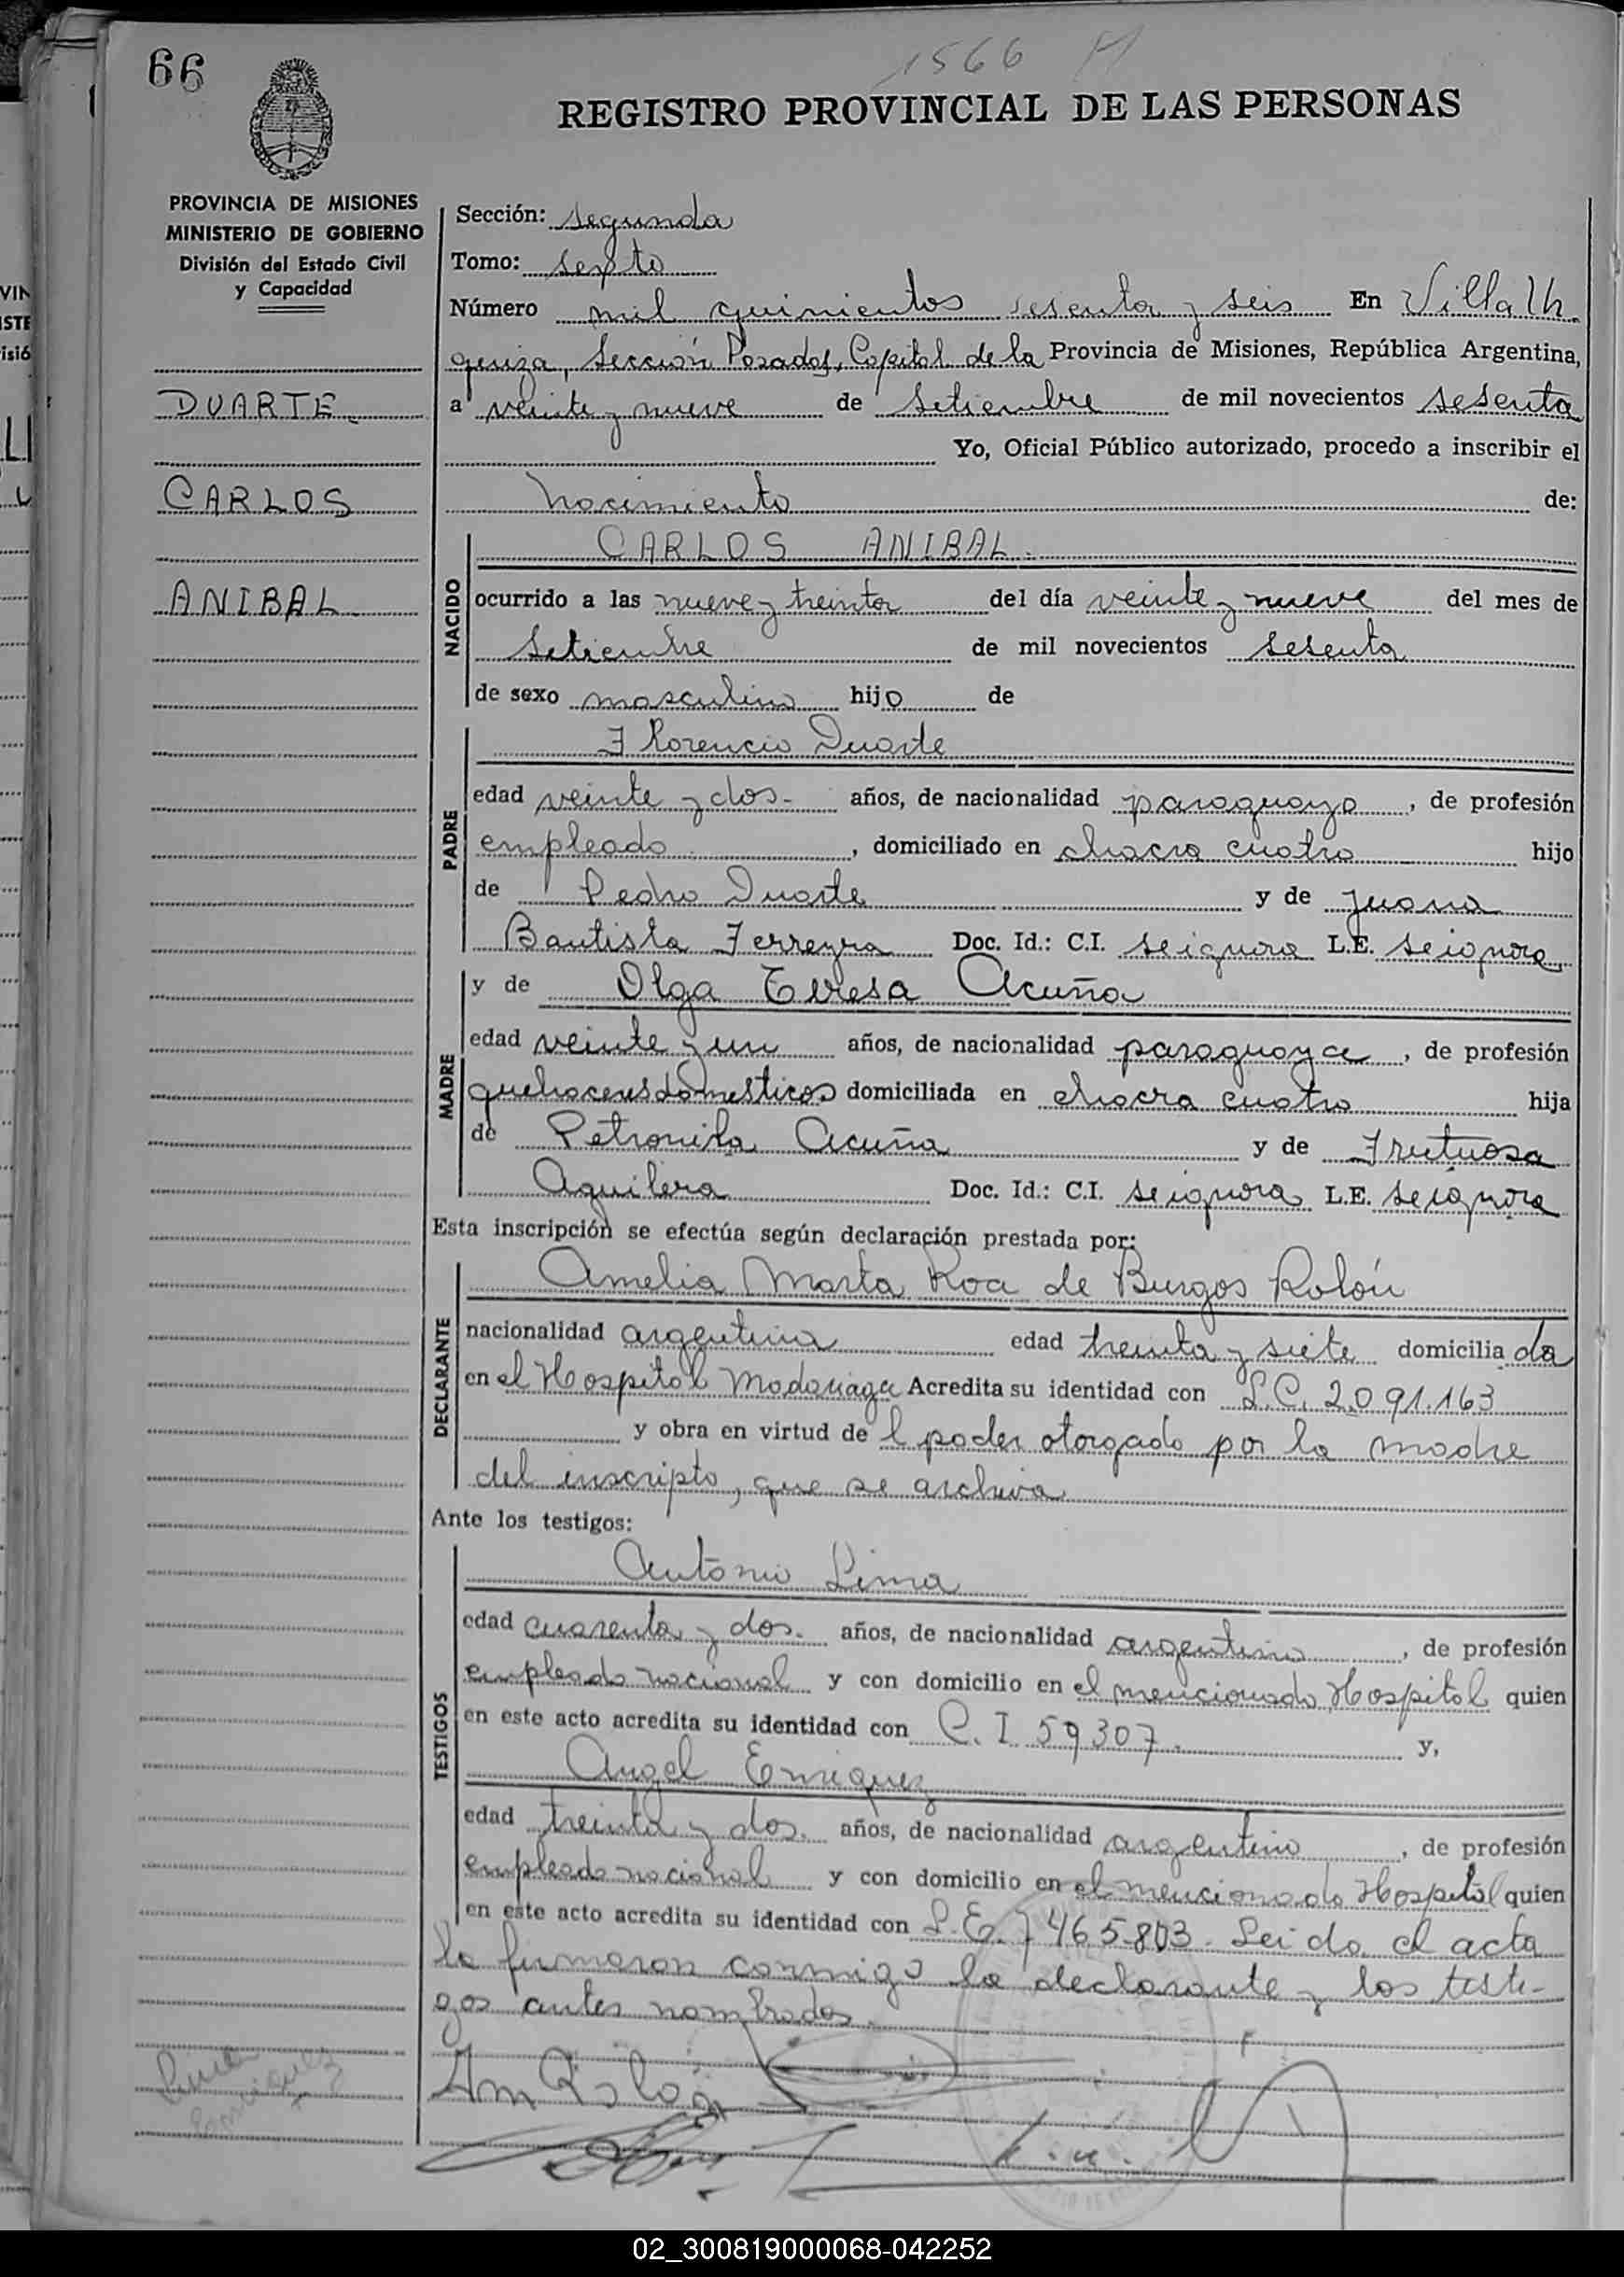 66
1566
REGISTRO PROVINCIAL DE LAS PERSONAS
PROVINCIA DE MISIONES
MINISTERIO DE GOBIERNO
División del Estado Civil
y Capacidad
DUARTE
CARLOS
ANIBAL
Sección: segunda
Tomo: sexto
Número mil quinientos sesenta y seis En Villa Ur
quiza, Sección Posadas, Capital de la Provincia de Misiones, República Argentina,
a veinte y nueve de Setiembre de mil novecientos sesenta
Yo, Oficial Público autorizado, procedo a inscribir el
nacimiento de:
NACIDO
CARLOS ANIBAL.
ocurrido a las nueve y treinta del día veinte y nueve del mes de
Setiembre de mil novecientos sesenta
de sexo masculino hijo de
PADRE
Florencio Duarte
edad veinte y dos- años, de nacionalidad paraguayo, de profesión
empleado, domiciliado en chacra cuatro hijo
de Pedro Duarte y de Juana
Bautista Ferreyra Doc. Id.: C.I. se ignora L.E. se ignora
MADRE
y de Olga Teresa Acuña
edad veinte y un años, de nacionalidad paraguaya, de profesión
quehaceres domesticos domiciliada en chacra cuatro hija
de Petronila Acuña y de Frutuosa
Aguilera Doc. Id.: C.I. se ignora L.E. se ignora
Esta inscripción se efectúa según declaración prestada por:
DECLARANTE
Amelia Marta Roa de Burgos Rolón
nacionalidad argentina edad treinta y siete domiciliada
en el Hospital Madariaga Acredita su identidad con L.C. 2.091.163
y obra en virtud del poder otorgado por la madre
del inscripto, que se archiva
Ante los testigos:
TESTIGOS
Antonio Lima
edad cuarenta y dos. años, de nacionalidad argentino, de profesión
empleado nacional y con domicilio en el mencionado Hospital quien
en este acto acredita su identidad con C. I 59307. y,
Angel Enriquez
edad treinta y dos. años, de nacionalidad argentino, de profesión
empleado nacional y con domicilio en el mencionado Hospital quien
en este acto acredita su identidad con L.E. 7465.803. Leida el acta
la firmaron conmigo la declarante y los testi-
gos antes nombrados.
Lima
Enriquez
Am Rolón
02_300819000068-042252